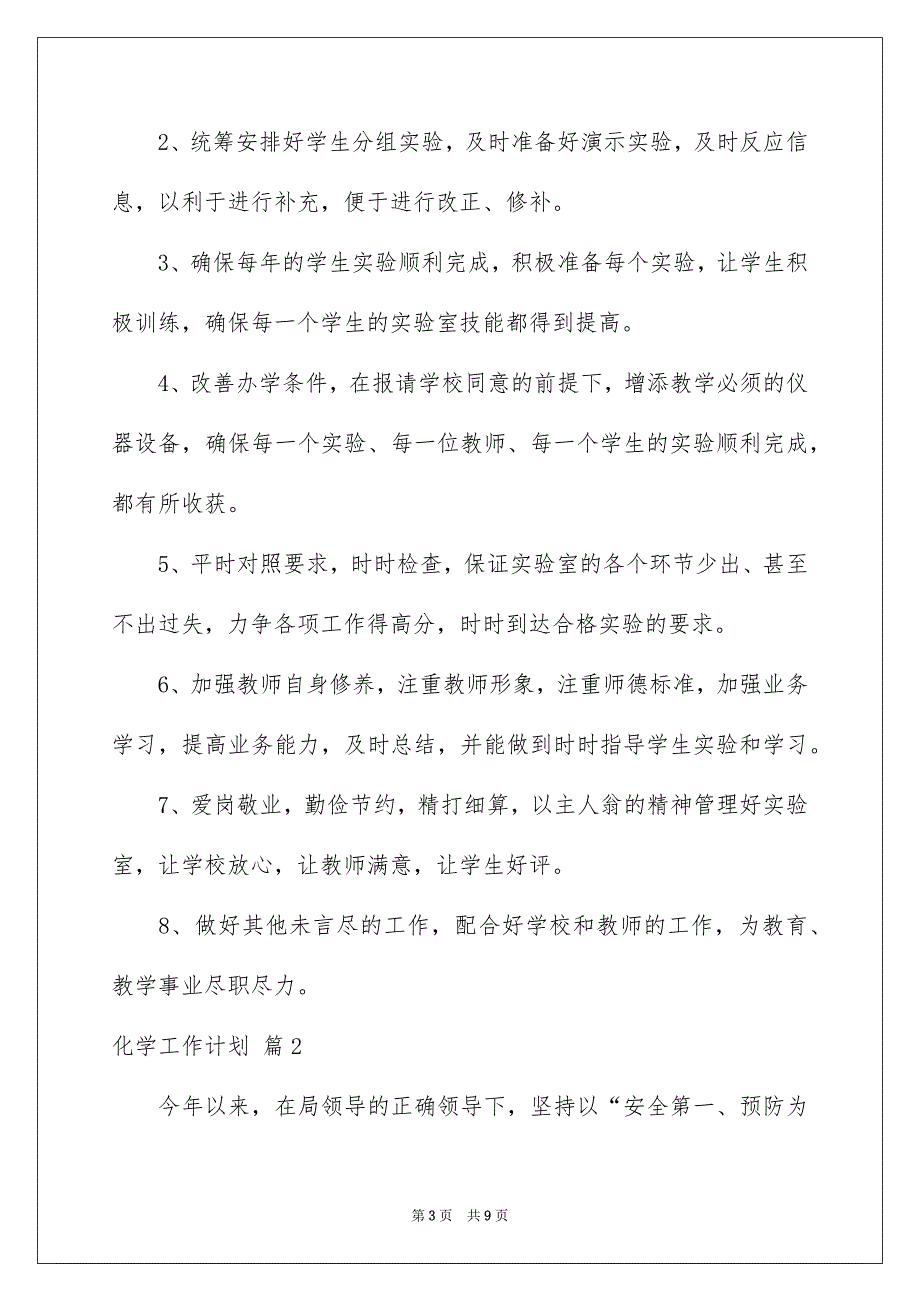 2、统筹安排好学生分组实验，及时准备好演示实验，及时反应信
息，以利于进行补充，便于进行改正、修补。
3、确保每年的学生实验顺利完成，积极准备每个实验，让学生积
极训练，确保每一个学生的实验室技能都得到提高。
4、改善办学条件，在报请学校同意的前提下，增添教学必须的仪
器设备，确保每一个实验、每一位教师、每一个学生的实验顺利完成，
都有所收获。
5、平时对照要求，时时检查，保证实验室的各个环节少出、甚至
不出过失，力争各项工作得高分，时时到达合格实验的要求。
6、加强教师自身修养，注重教师形象，注重师德标准，加强业务
学习，提高业务能力，及时总结，并能做到时时指导学生实验和学习。
7、爱岗敬业，勤俭节约，精打细算，以主人翁的精神管理好实验
室，让学校放心，让教师满意，让学生好评。
8、做好其他未言尽的工作，配合好学校和教师的工作，为教育、
教学事业尽职尽力。
化学工作计划 篇2
今年以来，在局领导的正确领导下，坚持以“安全第一、预防为
第3页 共9页